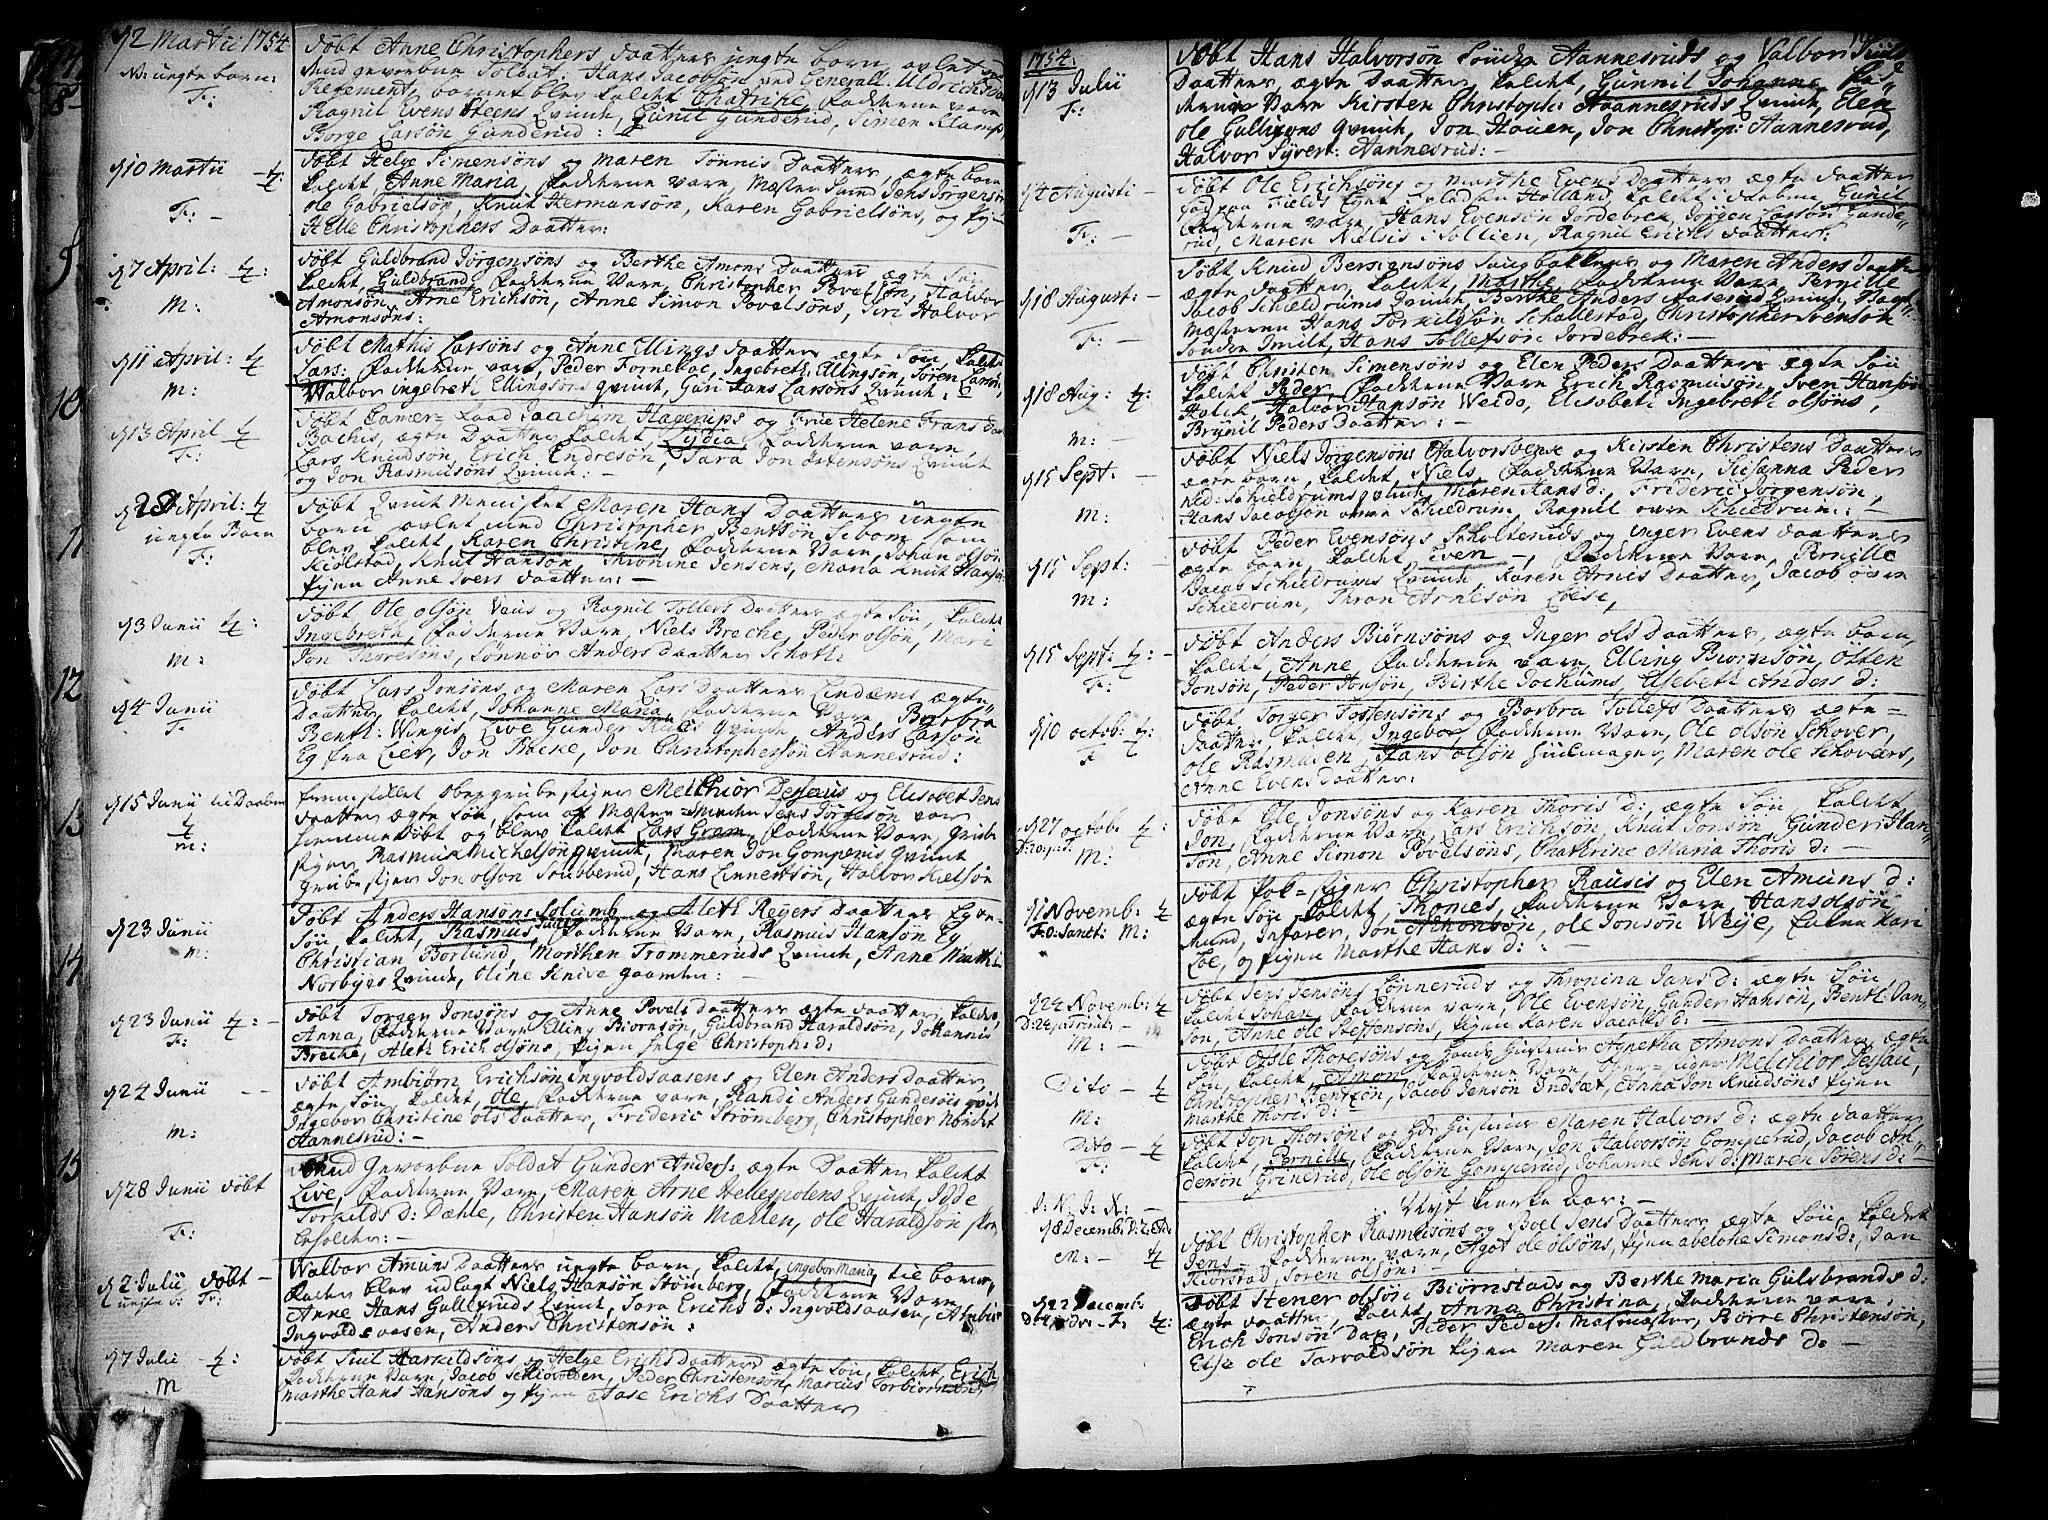 12 Martii 1754
N: uægte barn:
F: -
døbt Anne Christophers daatters uægte barn, avlet
med geworbne Soldat: Hans Jacobsøn ved Generall: Uldrichs
Regement, barnet blev kaldt Chatrine, fadderne vare
Ragnil Evens Steens qvinde, Gunil Gunderud, Simen Klamp
Borge Larsøn Gunderud:
10 Martii
F: -
døbt Helge Simensøns og Maren Tønnis daatters, ægte barn
kaldt, Anne Maria, fadderne vare, Mæster Jens Jørgensøn
Ole Gabrielsøn, Knut Hermansøn, Karen Gabrielsøns, og pigen
Helle Christophers daatter:
7 April:
M:
døbt Guldbrand Jørgensøns og Berthe Amons daatters ægte Søn
kaldt, Guldbrand, fadderne vare, Christopher Povelsøn, Halvor
Amonsøn, Arne Erichsøn, Anne Simon Povelsøns, Siri Halvor
Amonsøns:
11 April:
M:
døbt Mathis Larsøns og Anne Ellings daatters ægte Søn, kaldt
Lars: fadderne vare, Peder Forneboe, Ingebreth Ellingsøn, Søren Larsøn,
Walbor Ingebreth Ellingsøns qvinde, Guri Hans Larsøns qvinde:
13 April
F:
døbt Camer-Raad Joachim Hagerups og Frue Helene Frans
Bachis, ægte daatter kaldt, Lydia, fadderne vare,
Lars Knudsøn, Erich Endresøn, Sara Jon Ørtensøns qvinde
og Jon Rasmusøns qvinde: -
April:
uægte Barn
F:
døbt qvinde mennisket Maren Hans daatters uægte
barn avlet med Christopher Benthsøn som
blev kaldt Karen Christine, fadderne vare, Johan Olsøn
Kiølstad, Knut Hansøn, Thronine Jensens, Maria Knut Hansøns
pigen Anne Ivers daatter: -
3 Junii
M:
døbt Ole Olsøn Veus og Ragnil Tollefs daatters ægte Søn, kaldt
Ingebreth, fadderne vare, Niels Breche, Peder Olsøn, Mari
Jon Thoresøns, Sønnøv Anders daatter
4 Junii
F:
døbt Lars Jonsøns og Maren Lars daatters Lindæms ægte
daatter, kaldt, Johanne Maria, fadderne vare Barbra
Benth: Wingis, Live Gunder Ruds qvinde, Anders Larsøn
Eg fra Lier, Jon Boene, Jon Christophersøn Hannesrud:
15 Junii til Daaben
M:
fremstillet obergrubestiger Melchior Dessaus og Elisabet Jens
daatters ægte Søn, som af Mæster Jens Jørgesøn var
hiemme døbt og blev kaldt Lars Gram, fadderne vare, grube
stiger Rasmus Michelsøns qvinde, Maren Jon Gomperuds qvinde
grubestiger Jon Olsøn Soubberud, Hans Linnertsøn, Halvor Kielsøn
23 Junii
M:
døbt Anders Hansøns Solumb og Aleth Reyers daatters Egte
Søn kaldt, Rasmus, fadderne vare, Rasmus Hansøn Eg
Christian Borlund, Morthen Trommeruds qvinde, Anne Marthe
Norbyes qvinde, Oline Snive gaarden: -
23 Junii
F:
døbt Torger Jonsøns og Anne Povels daatters ægte daatter, kaldt,
Anna, fadderne vare Elling Biørnsøn, Guldbrand Haraldsøn, Johannis
Breche, Aleth Erich Olsøns, pigen Helge Christoph: d:
24 Junii
M:
døbt Ambiørn Erichsøn Ingvoldsaasens og Elen Anders daatters,
ægte Søn, kaldt, Ole, fadderne vare, Randi Anders Gundesøis qvinde
Ingebor Christine Ols daatter, Frideric Strømberg, Christopher
Hannesrud: -
28 Junii døbt
F:
Geworbne Soldat Gunder Anders: ægte daatter kaldt
Live, fadderne vare, Maren Arne Hellespolens qvinde, Idde
Torkilds d: Dæhle, Christen Hansøn Mæhlen, Ole Haraldsøn
12 Julii døbt -
uægte d: F:
Walbor Amuns daatters uægte barn, kaldt, Ingebor Maria, til barne-
fader blev udlagt Niels Hansøn Strømberg, fadderne vare
Anne Hans Gullexruds qvinde, Sara Erichs d: Ingvoldsaasen, Ambiør
Ingvoldsaasen, Anders Christensøn:
7 Julii
M
døbt Siul Harkildsøns og Helge Erichs daatters ægte Søn, kaldt, Erich
fadderne vare, Jacob Schiøvolden, Peder Christensøn, Marcus Torbiørnsøn
Marthe Hans Hansøns og pigen Aase Erichs daatter
1754:
13 Julii
F:
døbt Hans Halvorsøn Søndre Hannesruds og Valbor Siul
daatters ægte daatter, kaldt, Gunnil Johanne, fad-
derne vare Kirsten Christoph: Haannesruds qvinde, Elen
Ole Gullixons qvinde, Jon Houen, Jon Christop: Hannesrud,
Halvor Syvert: Hannesrud: -
4 Augusti -
F: -
døbt Ole Erichsøns og Marthe Evens daatters ægte daatter
paa Fields Eyet i pladsen Holland, kaldt i daaben Gunil
fadderne vare, Hans Evensøn Jordebrek, Jørgen Larsøn Gunde-
rud, Maren Nielsis i Lollien, Ragnil Erichs daatter:
18 August: -
F: -
døbt Knud Bersvensøns Haugbakkens og Maren Anders daatters
ægte daatter, kaldt, Marthe, fadderne vare Pernille
Jacob Schiedrums qvinde, Berthe Anders Aaserud qvinde,
Mæsterne Hans Torkildsøn Schallestad, Christopher Svensøn
Søndre Smilt, Hans Tollefsøn Jordebrek: -
18 Aug:
M: -
døbt Christen Simensøns og Elen Peders daatters ægte Søn
kaldt, Peder, fadderne vare Erich Rasmusøn, Sven Hansøn
Halvor Hansøn Weids, Elisabeth Ingebreth Olsøns,
Brynil Peders daatter: -
15 Sept: -
M:
døbt Niels Jørgensøns Halvorsbene og Kirsten Christens daatters
ægte barn, kaldt, Niels, fadderne vare, Susanna Peder
ned: Schieldrums qvinde, Maren Hans d:, Frideric Jørgensøn,
Hans Jacobsøn øvre Schiedrum, Ragnil øvre Schiedrum: -
15 Sept: -
M:
døbt Peder Evensøns Scholteruds og Inger Evens daatters
ægte barn, kaldt, Even -, fadderne vare, Pernille
Jacob Schiedrums qvinde, Karen Arnes daatter, Jacob øvre
Schiedrum, Thron Arnesøn Loese,
15 Sept:
F:
døbt Anders Biørnsøns og Inger Ols daatters, ægte barn,
kaldt, Anne, fadderne vare, Elling Biørnsøn, Otter
Jonsøn, Peder Jonsøn, Birthe Jochums, Elsebeth Anders d:
10 octob:
F
døbt Torger Tostensøns og Barbra Tollefs daatters ægte-
daatter, kaldt, Ingebor, fadderne vare, Ole Olsøn Schover,
Ole Rasmusen, Hans Olsøn Huulmager, Maren Ole Schovers,
Anne Evens daatter:
27 octob:
M:
døbt Ole Jonsøns og Karen Thoris d:, ægte Søn, kaldt
Jon, fadderne vare, Lars Erichsøn, Knut Jonsøn, Gunder Han-
søn, Anne Simon Povelsøns, Chathrine Maria Thoris d: -
1 Novemb:
Fo: Sanct: M:
døbt Pok-stiger Christopher Rausis og Elen Amuns d:
ægte Søn kaldt, Thomes, fadderne vare Hans Olsøn
Mund, Infører, Jon Amonsøn, Ole Jonsøn Weye, Enken Kari
Loe, og pigen Marthe Hans d: -
24 Novemb:
M: -
døbt Jens Jensøns Lønneruds og Thronina Jans d: ægte Søn
kaldt Johan, fadderne vare, Ole Evensøn, Gunder Hansøn, Benth: Jan,
son, Anne Ole Steffensøns, pigen Karen Jacobs d: -
Dito -
M:
døbt Osle Thoresøns og hands Hustrues Agnetha Amons daatters, ægte
Søn, kaldt, Amon, fadderne vare, Ober-stiger Melchior Dessau,
Christopher Bentsøn, Jacob Jensøn Indsæt, Anna Jon Knudsøns pigen
Marthe Thoris d:
Dito -
F:
døbt Jon Thorsøns og hds: Hustrues Maren Halvors d: ægte daatter,
kaldt, Pernille, fadderne vare, Jon Halvorsøn Gomperud, Jacob An-
dersøn Grinerud, Ole Olsøn Gomperud, Johanne Jens d: Maren Sørens d:
Nyt kirke Aar: -
J: N: J: N: -
8 Decemb: D: 2 Adv:
M: -
døbt Christopher Rasmusøns og Boel Jens daatters ægte Søn, kaldt
Jens, fadderne vare, Agot Ole Olsøns, pigen Abelohe Simons d:, Jan
Kiørstad, Søren Olsøn: -
22 Decemb:
D: 4 Adv: - F:
døbt Stener Olsøn Biørnstads og Berthe Maria Gulsbrands d:
ægte daatter, kaldt, Anna Christina, fadderne vare,
Erich Jonsøn Dal, Peder Peders: Masmæster, Børre Christensøn,
Else Ole Tarvaldsøn pigen Maren Guldbrands d: -
8
9
10
11
12
13
14
15